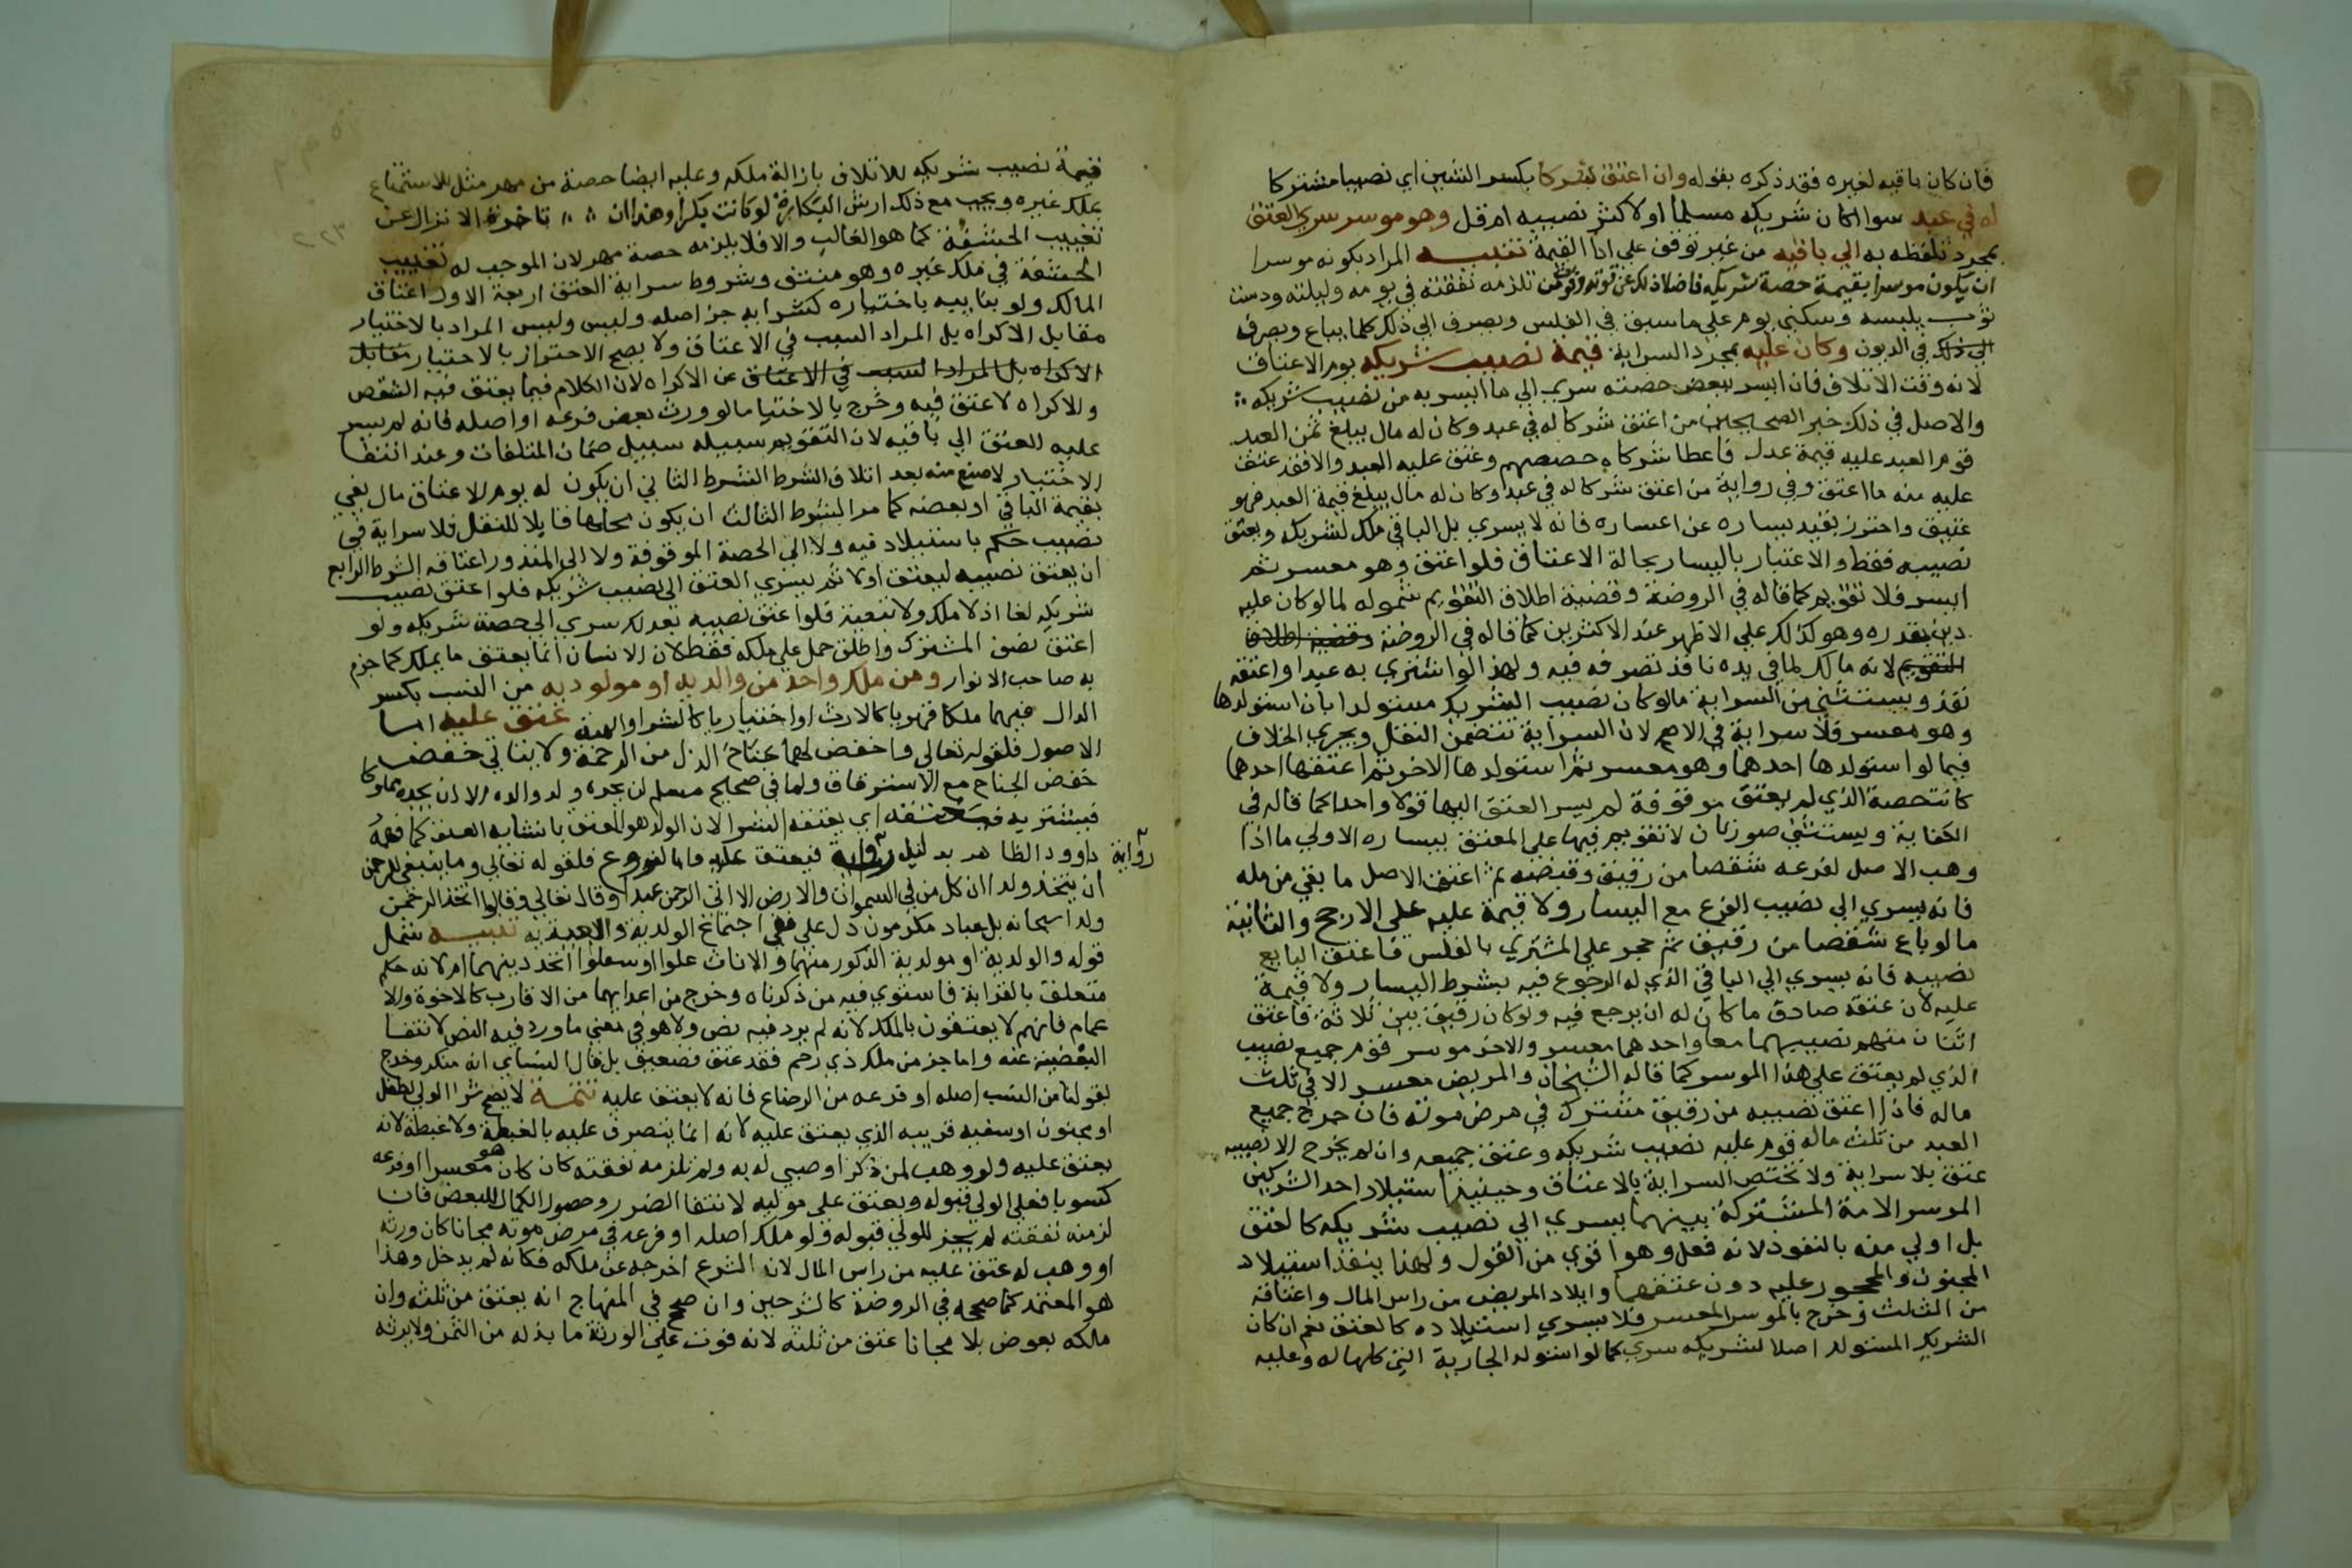 فان كان باقيه لغيره فقد ذكره بقوله وان اعتق شركا بكسر الشين اي نصيبا مشتركا
له في عبد سوا اكان شريكه مسلما او لا كثر نصيبه ام قل وهو موسر سري العتق
بمجرد تلفظه به الي باقيه من غير توقف علي ادا القيمة تنبيه المراد بكونه موسرا
ان يكون موسرا بقيمة حصة شريكه فاضلا ذلك عن قوته وقوت من تلزمه نفقته في يومه وليلته ودست
ثوب يلبسه وسكني يوم علي ما سبق في الفلس ويصرف الي ذلك كلما يباع ويصرف
الي ذلك في الديون وكان عليه بمجرد السراية قيمة نصيب شريكه يوم الاعتاق
لانه وقت الاتلاف فان ايسر ببعض حصته سري الي ما ايسر به من نصيب شريكه
والاصل في ذلك خبر الصحيحين من اعتق شركا له في عبد وكان له مال يبلغ ثمن العبد
قوم العبد عليه قيمة عدل فاعطا شركاه حصصهم وعتق عليه العبد والا فقد عتق
عليه منه ما اعتق وفي رواية من اعتق شركا له في عبد وكان له مال يبلغ قيمة العبد فهو
عتيق واحترز بقيد يساره عن اعساره فانه لا يسري بل الباقي ملك لشريكه ويعتق
نصيبه فقط والاعتبار باليسار بحالة الاعتاق فلو اعتق وهو معسر ثم
ايسر فلا تقويم كما قاله في الروضة وقضية اطلاق التقويم شموله لما لو كان عليه
دين بقدره وهو كذلك علي الاظهر عند الاكثرين كما قاله في الروضة وقضية اطلاق
التقويم لانه مالك لما في يده نافذ تصرفه فيه ولهذا لو اشتري به عبدا واعتقه
نفذ ويستثني من السراية ما لو كان نصيب الشريك مستولدا بان استولدها
وهو معسر فلا سراية في الاصح لان السراية تتضمن النقل ويجري الخلاف
فيما لو استولدها احدهما وهو معسر ثم استولدها الاخر ثم اعتقها احدهما
كانت حصة الذي لم يعتق موقوفة لم يسر العتق اليها قولا واحدا كما قاله في
الكفاية ويستثني صورتان لا تقويم فيها علي المعتق بيساره الاولي ما اذا
وهب الاصل لفرعه شقصا من رقيق وقبضه ثم اعتق الاصل ما بقي من مله
فانه يسري الي نصيب الفرع مع اليسار ولا قيمة عليه علي الارجح والثانية
ما لو باع شقصا من رقيق ثم حجر علي المشتري بالفلس فاعتق البايع
نصيبه فانه يسري الي الباقي الذي له الرجوع فيه بشرط اليسار ولا قيمة
عليه لان عتقه صادق ما كان له ان يرجع فيه ولو كان رقيق بين ثلاثة فاعتق
اثنان منهم نصيبيهما معا واحدهما معسر والاخر موسر قوم جميع نصيب
الذي لم يعتق علي هذا الموسر كما قاله الشيخان والمريض معسر الا في ثلث
ماله فاذا اعتق نصيبه من رقيق مشترك في مرض موته فان خرج جميع
العبد من ثلث ماله قوم عليه نصيب شريكه وعتق جميعه وان لم يخرج الا نصيبه
عتق بلا سراية ولا تختص السراية بالاعتاق وحينيذ استيلاد احد الشريكين
الموسر الامة المشتركة بينهما يسري الي نصيب شريكه كالعتق
بل اولي منه بالنفوذ لانه فعل وهو اقوي من القول ولهذا ينفذ استيلاد
المجنون والمحجور عليه دون عتقهما وايلاد المريض من راس المال واعتاقه
من الثلث وخرج بالموسر المعسر فلا يسري استيلاده كالعتق نعم ان كان
الشريك المستولد اصلا لشريكه سري كما لو استولد الجارية التي كلها له وعليه
قيمة نصيب شريكه للاتلاف بازالة ملكه وعليه ايضا حصة من مهر مثل للاستمتاع
بملك غيره ويجب مع ذلك ارش البكارة لو كانت بكرا وهذا ان تاخر الانزال عن
تغييب الحشفة كما هو الغالب والا فلا يلزمه حصة مهر لان الموجب له تغييب
الحشفة في ملك غيره وهو منتق وشروط سراية العتق اربعة الاول اعتاق
المالك ولو بنايبه باختياره كشرايه جز اصله وليس وليس المراد بالاختيار
مقابل الاكراه بل المراد السبب في الاعتاق ولا يصح الاحتراز بالاختيار مقابل
الاكراه بل المراد السبب في الاعتاق عن الاكراه لان الكلام فيما يعتق فيه الشقص
وللاكراه لا عتق فيه وخرج بالاختيا ما لو ورث بعض فرعه او اصله فانه لم يسر
عليه العتق الي باقيه لان التقويم سبيله سبيل ضمان المتلفات وعند انتفا
الاختيار لا صنع منه بعد اتلاف الشرط الشرط الثاني ان يكون له يوم الاعتاق مال يفي
بقيمة الباقي او بعضه كما مر الشرط الثالث ان يكون محلها قابلا للنقل فلا سراية في
نصيب حكم باستيلاد فيه ولا الي الحصة الموقوفة ولا الي المنذور اعتاقه الشرط الرابع
ان يعتق نصيبه ليعتق اولا ثم يسري العتق الي نصيب شريكه فلو اعتق نصيب
شريكه لغا اذ لا ملك ولا تبعية فلو اعتق نصيبه بعد ذلك سري الي حصة شريكه ولو
اعتق نصف المشترك واطلق حمل علي ملكه فقط لان الانسان انما يعتق ما يملك كما جزم
به صاحب الانوار ومن ملك واحد من والديه او مولوديه من النسب بكسر
الدال فيهما ملكا قهريا كالارث او اختياريا كالشرا والهبة عتق عليه اما
الاصول فلقوله تعالي واخفض لهما جناح الذل من الرحمة ولا يتاتي خفض
خفض الجناح مع الاسترقاق ولما في صحيح مسلم لن يجزي ولد والده الا ان يجده مملوكا
فيشتريه فيعتقه اي يعتقه الشرا لان الولد هو المعتق بانشايه العتق كما فهمه
داوود الظاهر بدليل رواية فيعتق عليه واما الفروع فلقوله تعالي وما ينبغي للرحمن
رواية
ان يتخذ ولدا ان كل من في السموات والارض الا اتي الرحمن عبدا وقال تعالي وقالوا اتخذ الرحمن
ولدا سبحانه بل عباد مكرمون دل علي نفي اجتماع الولدية والعبدية تنبيه شمل
قوله والولدية او مولدية الذكور منهما والاناث علوا او سفلوا اتحد دينهما ام لا لانه حكم
متعلق بالقرابة فاستوي فيه من ذكرناه وخرج من اعدايهما من الاقارب كالاخوة والا
عمام فانهم لا يعتقون بالملك لانه لم يرد فيه نص ولا هو في معني ما ورد فيه النص لانتفا
البعضية عنه واما خبر من ملك ذي رحم فقد عتق فضعيف بل قال النساي انه منكر وخرج
بقولنا من النسب اصله او فرعه من الرضاع فانه لا يعتق عليه تتمة لا يصح شرا الولي لطفل
او مجنون او سفيه قريبه الذي يعتق عليه لانه انما يتصرف عليه بالغبطة ولا غبطة لانه
يعتق عليه ولو وهب لمن ذكر او وصي له به ولم تلزمه نفقته كان كان هو معسرا او فرعه
كسوبا فعلي الولي قبوله ويعتق علي موليه لانتفا الضرر وحصول الكمال للبعض فان
لزمته نفقته لم يجز للولي قبوله ولو ملك اصله او فرعه في مرض موته مجانا كان ورثه
او وهب له عتق عليه من راس المال لان الشرع اخرجه عن ملكه فكانه لم يدخل وهذا
هو المعتمد كما صححه في الروضة كالشرحين وان صحح في المنهاج انه يعتق من ثلثه وان
ملكه بعوض بلا مجانا عتق من ثلثه لانه فوت علي الورثة ما بذله من الثمن ولا يرثه